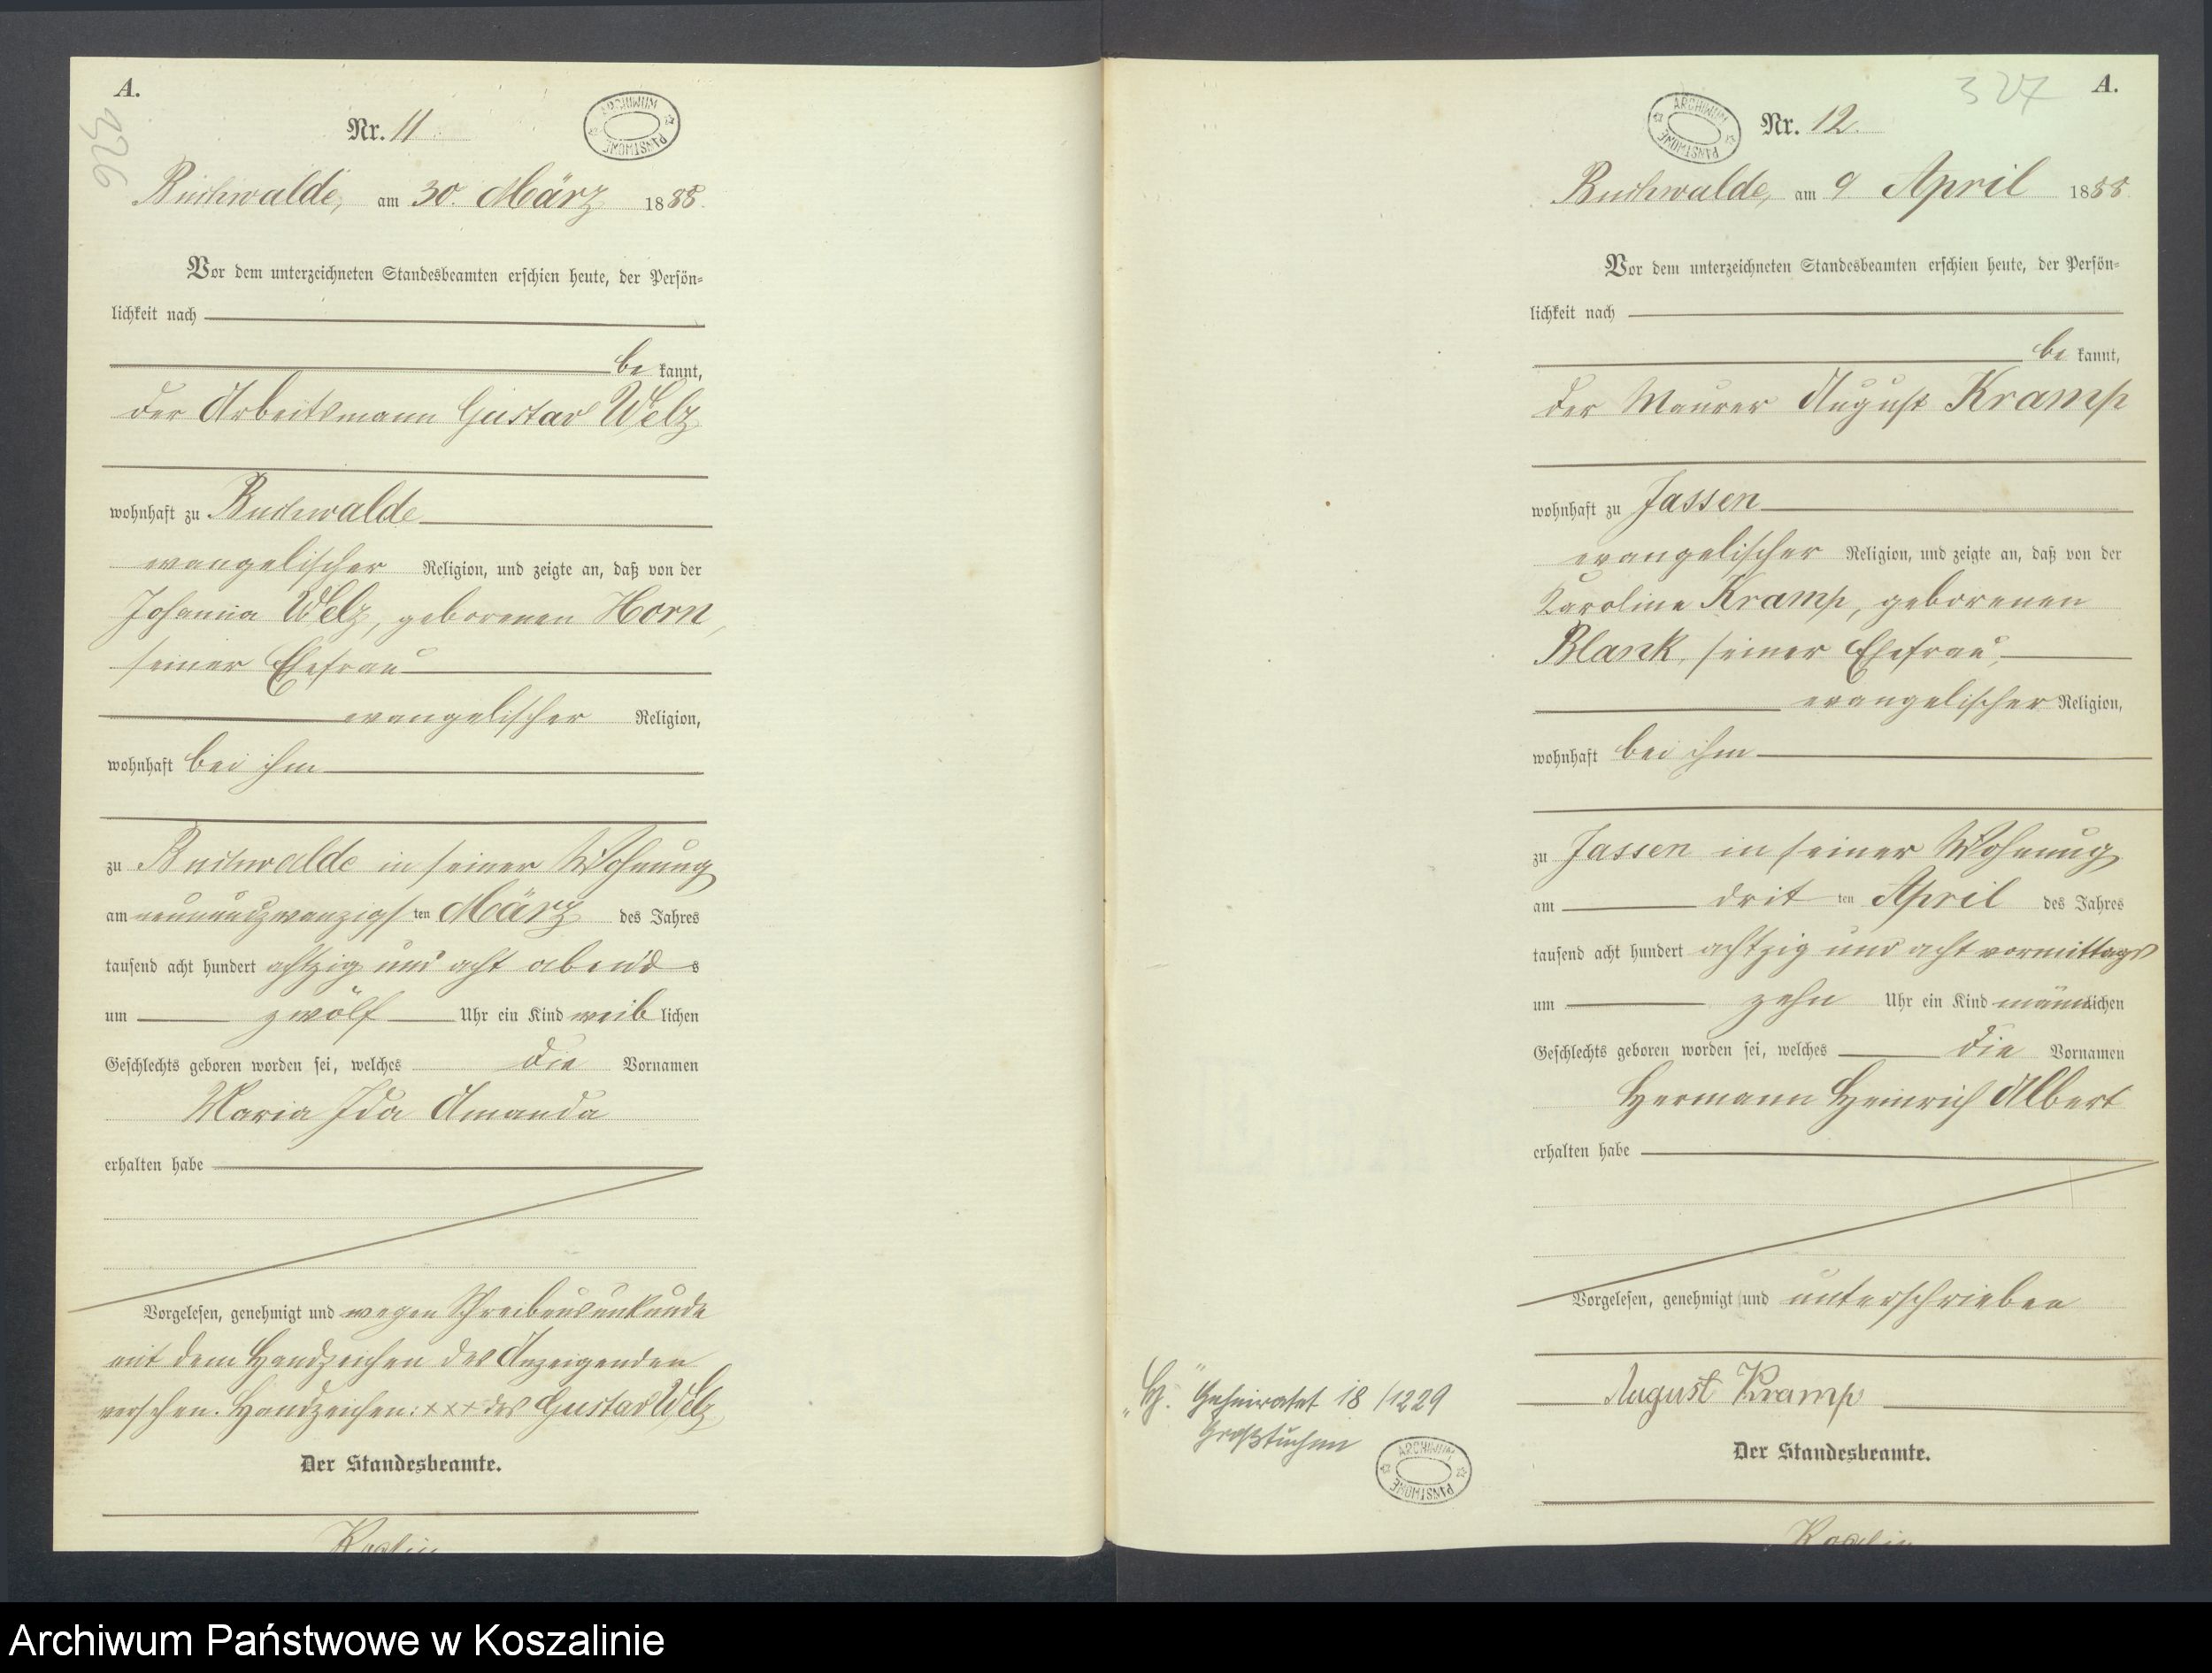 A.
326
Nr. 11
ARCHIWUM PAŃSTWOWE
Buchwalde, am 30. März 1888.
Vor dem unterzeichneten Standesbeamten erschien heute, der Persön-
lichkeit nach
be kannt,
der Arbeitsmann Gustav Welz
wohnhaft zu Buchwalde
evangelischer Religion, und zeigte an, daß von der
Johanna Welz, geborenen Horn,
seiner Ehefrau
evangelischer Religion,
wohnhaft bei ihm
zu Buchwalde in seiner Wohnung
am neunundzwanzigsten März des Jahres
tausend acht hundert achtzig und acht abends
um zwölf Uhr ein Kind weiblichen
Geschlechts geboren worden sei, welches die Vornamen
Maria Ida Amanda
erhalten habe
Vorgelesen, genehmigt und wegen Schreibensunkunde
mit dem Handzeichen des Anzeigenden
versehen. Handzeichen: xxx des Gustav Welz
Der Standesbeamte.
327
A.
ARCHIWUM PAŃSTWOWE
Nr. 12.
Buchwalde, am 9 April 1888.
Vor dem unterzeichneten Standesbeamten erschien heute, der Persön-
lichkeit nach
be kannt,
der Maurer August Kramp
wohnhaft zu Jassen
evangelischer Religion, und zeigte an, daß von der
Karoline Kramp, geborenen
Blank, seiner Ehefrau,
evangelischer Religion,
wohnhaft bei ihm
zu Jassen in seiner Wohnung
am dritten April des Jahres
tausend acht hundert achtzig und acht vormittags
um zehn Uhr ein Kind männlichen
Geschlechts geboren worden sei, welches die Vornamen
Hermann Heinrich Albert
erhalten habe
Vorgelesen, genehmigt und unterschrieben
August Kramp
Der Standesbeamte.
Geheiratet 18/1229
Großtuchen
ARCHIWUM PAŃSTWOWE
Archiwum Państwowe w Koszalinie